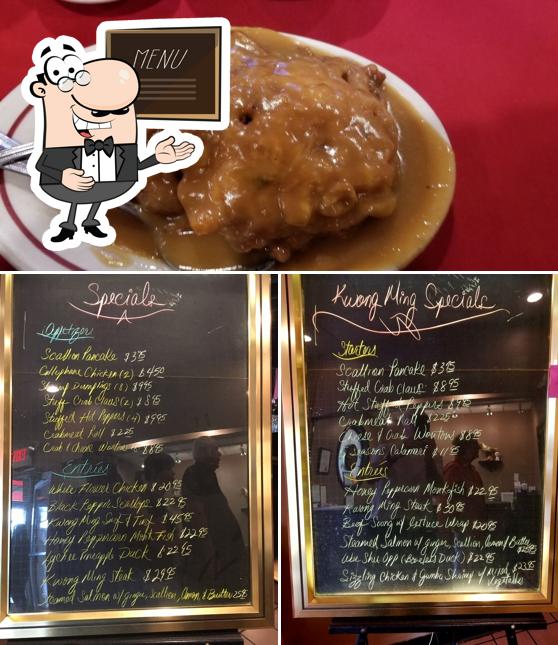 MENU
Specials
Appetizer
Scallion Pancake $3.95
Cellophane Chicken (2) $4.50
Shrimp Dumplings (8) $9.95
Stuff Crab Claws (2) $8.95
Stuffed Hot Peppers (4) $9.95
Crabmeat Roll $2.25
Crab & Cheese Wontons $8.95
Entries
White Flower Chicken $20.95
Black Pepper Scallops $22.95
Kwong Ming Surf & Turf $45.95
Honey Peppercorn Monk Fish $22.95
Lychee Pineapple Duck $22.95
Kwong Ming Steak $29.95
Steamed Salmon w/ ginger, Scallion, Lemon & Butter 25.95
Kwong Ming Specials
Starters
Scallion Pancake $3.95
Stuffed Crab Claws $8.95
Hot Stuffed Peppers $9.95
Crabmeat Roll
Cheese / Crab Wontons $8.95
Seasons Calamari $11.95
Entries
Honey Peppercorn Monkfish $22.95
Kwong Ming Steak $30.95
Beef Soong w/ Lettuce Wrap $20.95
Steamed Salmon w/ ginger, Scallion, Lemon / Butter $25.95
Wor Shu Opp (Boneless Duck) $22.95
Sizzling Chicken & Jumbo Shrimp w/ mixed Vegetables $23.95